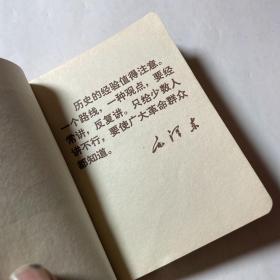 历史的经验值得注意。
一个路线，一种观点，要经
常讲，反复讲。只给少数人
讲不行，要使广大革命群众
都知道。
毛泽东